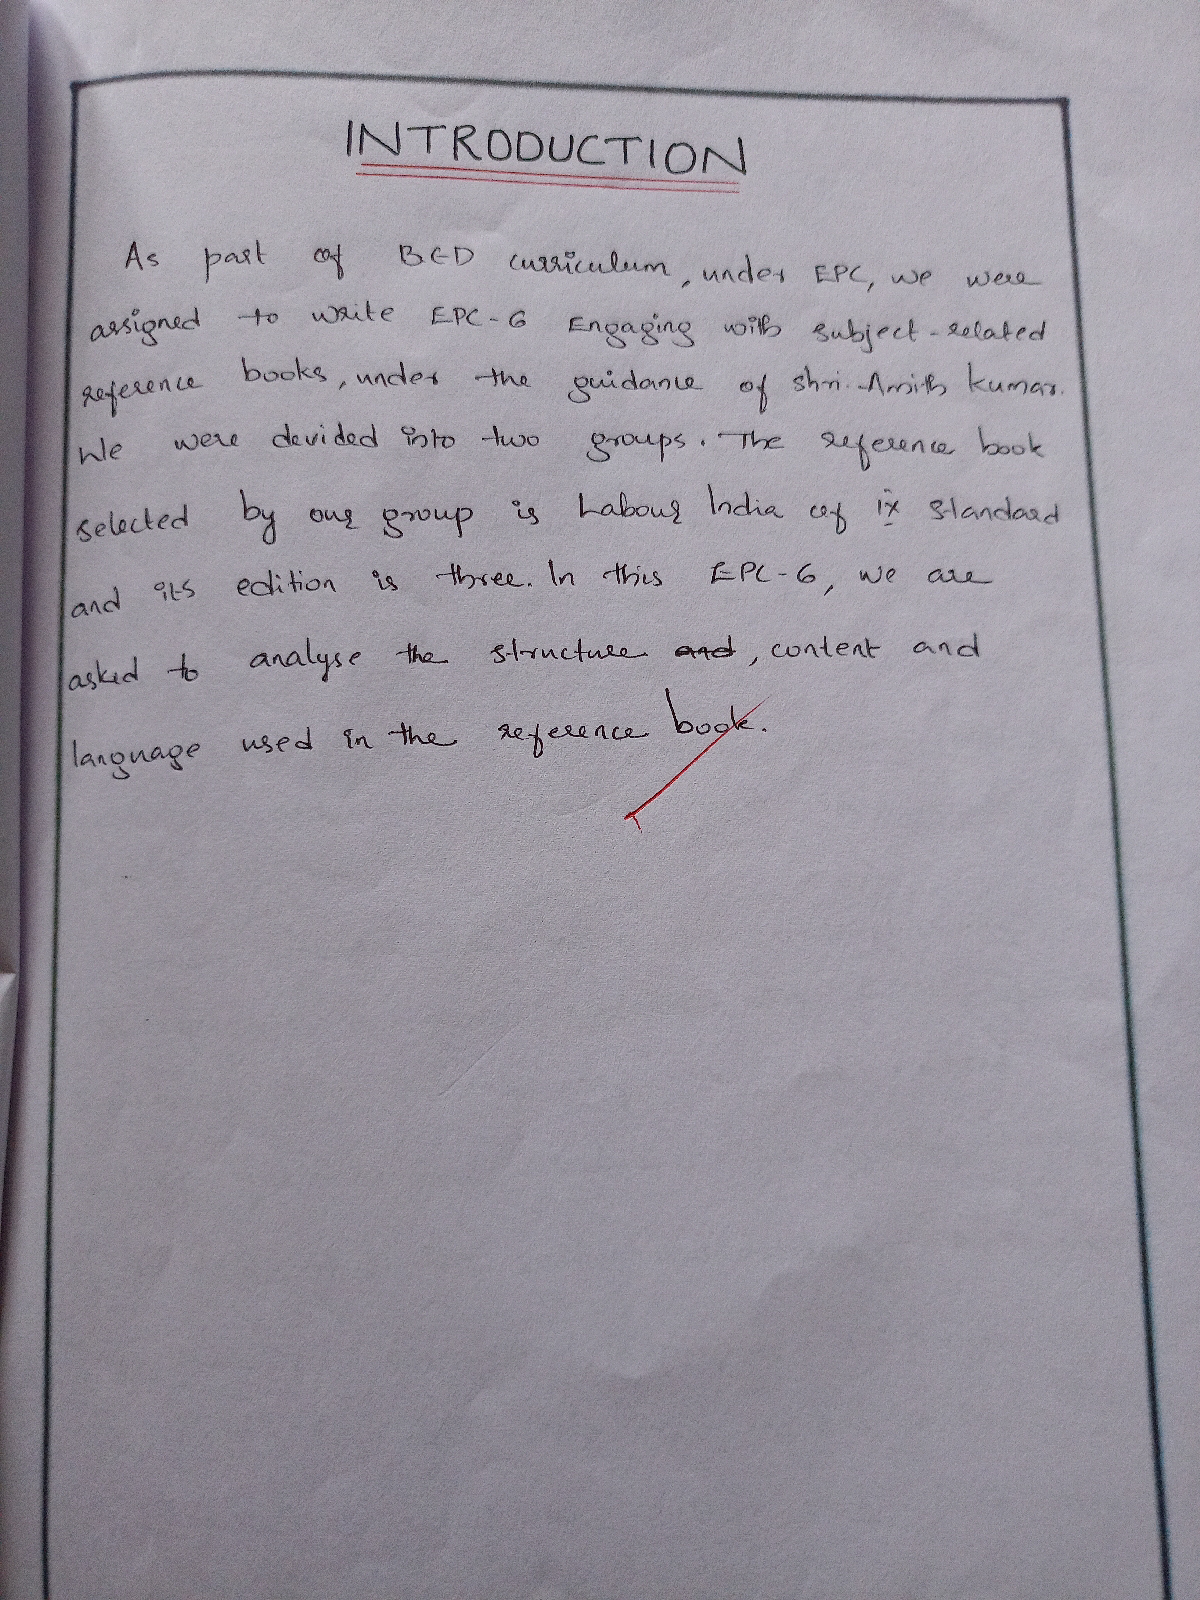 INTRODUCTION
As part of BED curriculum, under EPC, we were
assigned to write EPC-6 Engaging with subject-related
reference books, under the guidance of shri. Amith kumar.
We were devided into two groups. The reference book
selected by our group is Labour India of ix standard
and its edition is three. In this EPC-6, we are
asked to analyse the structure and, content and
language used in the reference book.